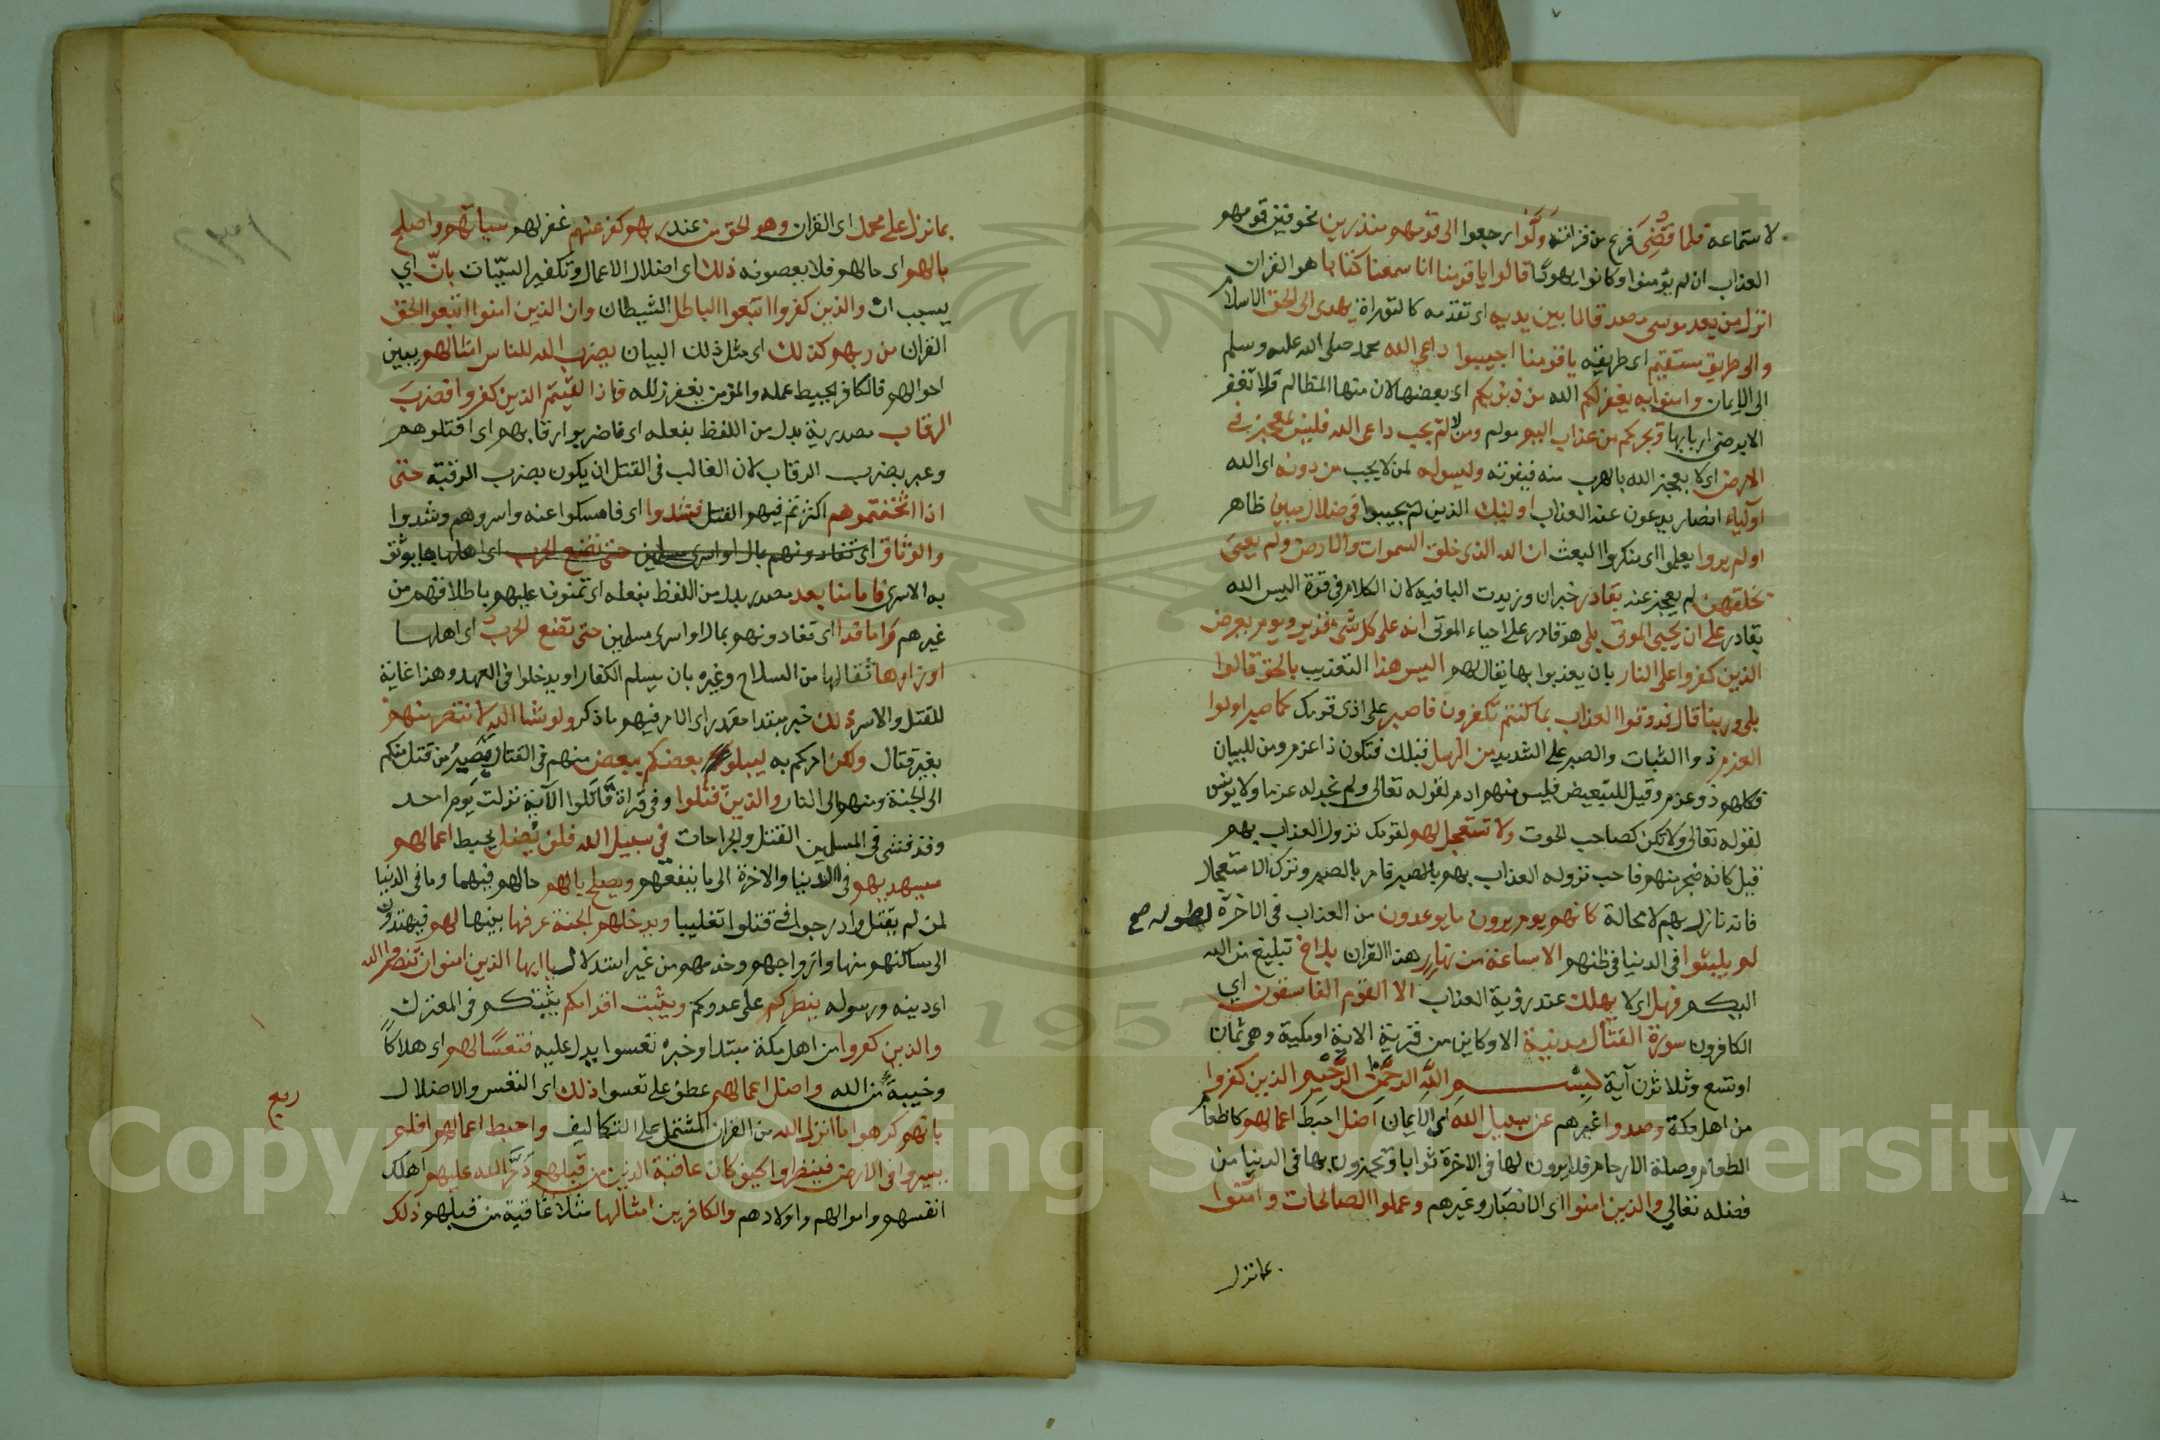 لاستماعه فلما قضى فرغ من قراءته ولوا رجعوا الى قومهم منذرين مخوفين قومهم
العذاب ان لم يؤمنوا وكانوا يهودا قالوا ياقومنا انا سمعنا كتابا هو القران
انزل من بعد موسى مصدقا لما بين يديه اى تقدمه كالتوراة يهدى الى الحق الاسلام
والى طريق مستقيم اى طريقه ياقومنا اجيبوا داعى الله محمد صلى الله عليه وسلم
الى الايمان وامنوا به يغفر لكم الله من ذنوبكم اى بعضها لان منها المظالم فلا تغفر
الا برضى اربابها ويجركم من عذاب اليم مولم ومن لا يجب داعى الله فليس بمعجز فى
الارض اى لا يعجز الله بالهرب منه فيفوته وليس له لمن لا يجب من دونه اى الله
اولياء انصار يدعون عنه العذاب اوليك الذين لم يجيبوا فى ضلال مبين ظاهر
اولم يروا يعلموا اى منكروا البعث ان الله الذى خلق السموات والارض ولم يعى
بخلقهن لم يعجز عنه بقادر خبر ان وزيدت الباء فيه لان الكلام فى قوة اليس الله
بقادر على ان يحيى الموتى بلى هو قادر على احياء الموتى انه على كل شئ قدير ويوم يعرض
الذين كفروا على النار بان يعذبوا بها يقال لهم اليس هذا التعذيب بالحق قالوا
بلى وربنا قال فذوقوا العذاب بما كنتم تكفرون فاصبر على اذى قومك كما صبر اولوا
العزم ذوا الثبات والصبر على الشديد من الرسل قبلك فتكون ذا عزم ومن للبيان
فكلهم ذو عزم وقيل للتبعيض فليس منهم ادم لقوله تعالى ولم نجد له عزما ولا يونس
لقوله تعالى ولا تكن كصاحب الحوت ولا تستعجل لهم لقومك نزول العذاب بهم
قيل كانه ضجر منهم فاحب نزول العذاب بهم فامر بالصبر وترك الاستعجال
فانه نازل بهم لا محالة كانهم يوم يرون ما يوعدون من العذاب فى الاخرة لطوله صح
لم يلبثوا فى الدنيا فى ظنهم الا ساعة من نهار هذا القران بلاغ تبليغ من الله
اليكم فهل اى لا يهلك عند رؤية العذاب الا القوم الفاسقون اي
الكافرون سورة القتال مدنية الا وكاين من قرية الاية او مكية وهى ثمان
او تسع وثلاثون آية بسم الله الرحمن الرحيم الذين كفروا
من اهل مكة وصدوا غيرهم عن سبيل الله اى الايمان اضل احبط اعمالهم كاطعام
الطعام وصلة الارحام فلا يرون لها فى الاخرة ثوابا ويجزون بها فى الدنيا من
فضله تعالى والذين امنوا اى الانصار وغيرهم وعملوا الصالحات وامنوا
بما نزل
بما نزل على محمد اى القران وهو الحق من عند ربهم كفر عنهم غفر لهم سيأتهم واصلح
بالهم اى حالهم فلا يعصونه ذلك اى اضلال الاعمال وتكفير السيئات بان اي
بسبب ان والذين كفروا اتبعوا الباطل الشيطان وان الذين امنوا اتبعوا الحق
القران من ربهم كذلك اى مثل ذلك البيان يضرب الله للناس امثالهم يبين
احوالهم فالكافر يحبط عمله والمؤمن يغفر زلله فاذا لقيتم الذين كفروا فضرب
الرقاب مصدر بدل من اللفظ بفعله اى فاضربوا رقابهم اى اقتلوهم
وعبر بضرب الرقاب لان الغالب فى القتل ان يكون بضرب الرقبة حتى
اذا اثخنتموهم اكثرتم فيهم القتل فشدوا اى فامسكوا عنه واسروهم وشدوا
والوثاق اى تفادونهم بمال او اسرى مسلمين حتى تضع الحرب اى اهلها ما يوثق
به الاسرى فاما منا بعد مصدر بدل من اللفظ بفعله اى تمنون عليهم باطلاقهم من
غيرهم واما فدا اى تفادونهم بمال او اسرى مسلمين حتى تضع الحرب اى اهلها
اوزارها اثقالها من السلاح وغيره بان يسلم الكفار او يدخلوا فى العهد وهذا غاية
للقتل والاسر ذلك خبر مبتدا مقدر اى الامر فيهم ما ذكر ولو يشا الله لانتصر منهم
بغير قتال ولكن امركم به ليبلو بعضكم ببعض منهم فى القتال فيصير من قتل منكم
الى الجنة ومنهم الى النار والذين قتلوا وفى قراة قاتلوا الآية نزلت يوم احد
وقد فشى فى المسلمين القتل والجراحات فى سبيل الله فلن يضل يحبط اعمالهم
سيهديهم فى الدنيا والاخرة الى ما ينفعهم ويصلح بالهم حالهم فيهما وما فى الدنيا
لمن لم يقتل وادرجوا فى قتلوا تغليبا ويدخلهم الجنة عرفها بينها لهم فيهتدون
الى مساكنهم منها وازواجهم وخدمهم من غير استدلال ياايها الذين امنوا ان تنصروا الله
اى دينه ورسوله ينصركم على عدوكم ويثبت اقدامكم يثبتكم فى المعترك
والذين كفروا من اهل مكة مبتدا وخبره تعسوا يدل عليه فتعسا لهم اى هلاكا
وخيبة من الله واضل اعمالهم عطف على تعسوا ذلك اى التعس والاضلال
بانهم كرهوا ما انزل الله من القران المشتمل على التكاليف واحبط اعمالهم افلم
يسيروا فى الارض فينظروا كيف كان عاقبة الذين من قبلهم دمر الله عليهم اهلك
انفسهم واموالهم واولادهم والكافرين امثالها مثل عاقبة من قبلهم ذلك
ربع
1957
Copyright © King Saud University